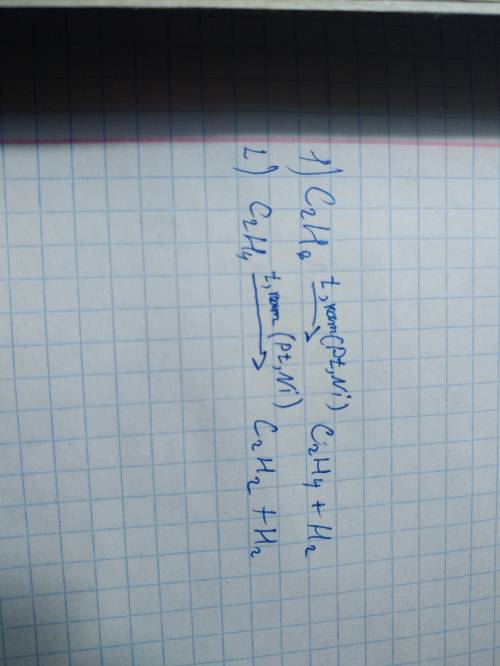 1) C₂H₆ t, кат (Pt, Ni) → C₂H₄ + H₂
2) C₂H₄ t, кат (Pt, Ni) → C₂H₂ + H₂